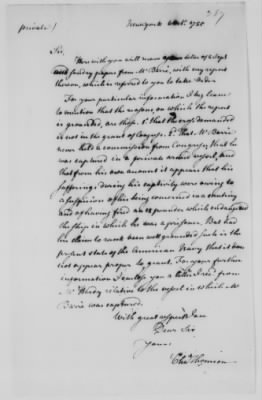 private /
259
New york
1785
Sir,
Herewith you will receive letter of 2 Sept
sundry papers from Mr Barre with my report
thereon, which is referred to you to take Order
For your particular information I beg leave
to mention that the reasons, on which the report
is grounded, are these. 1 that the rank demanded
is not in the grant of Congress. 2. That Mr Barre
never had a commission from Congress, that he
was captured in a private armed vessel, and
that from his own account it appears that his
sufferings during his captivity were owing to
a suspicion of his being concerned in a mutiny
and of having fired an 18 pounder which endangered
the ship in which he was a prisoner. But had
his claim to rank been well grounded such is the
present state of the American Navy that it does
not appear proper to grant. For your further
information I enclose you a letter recd from
Mr Hardy relative to the vessel in which Mr
Barre was captured.
With great respect I am
Dear Sir
Yours
Chas Thomson